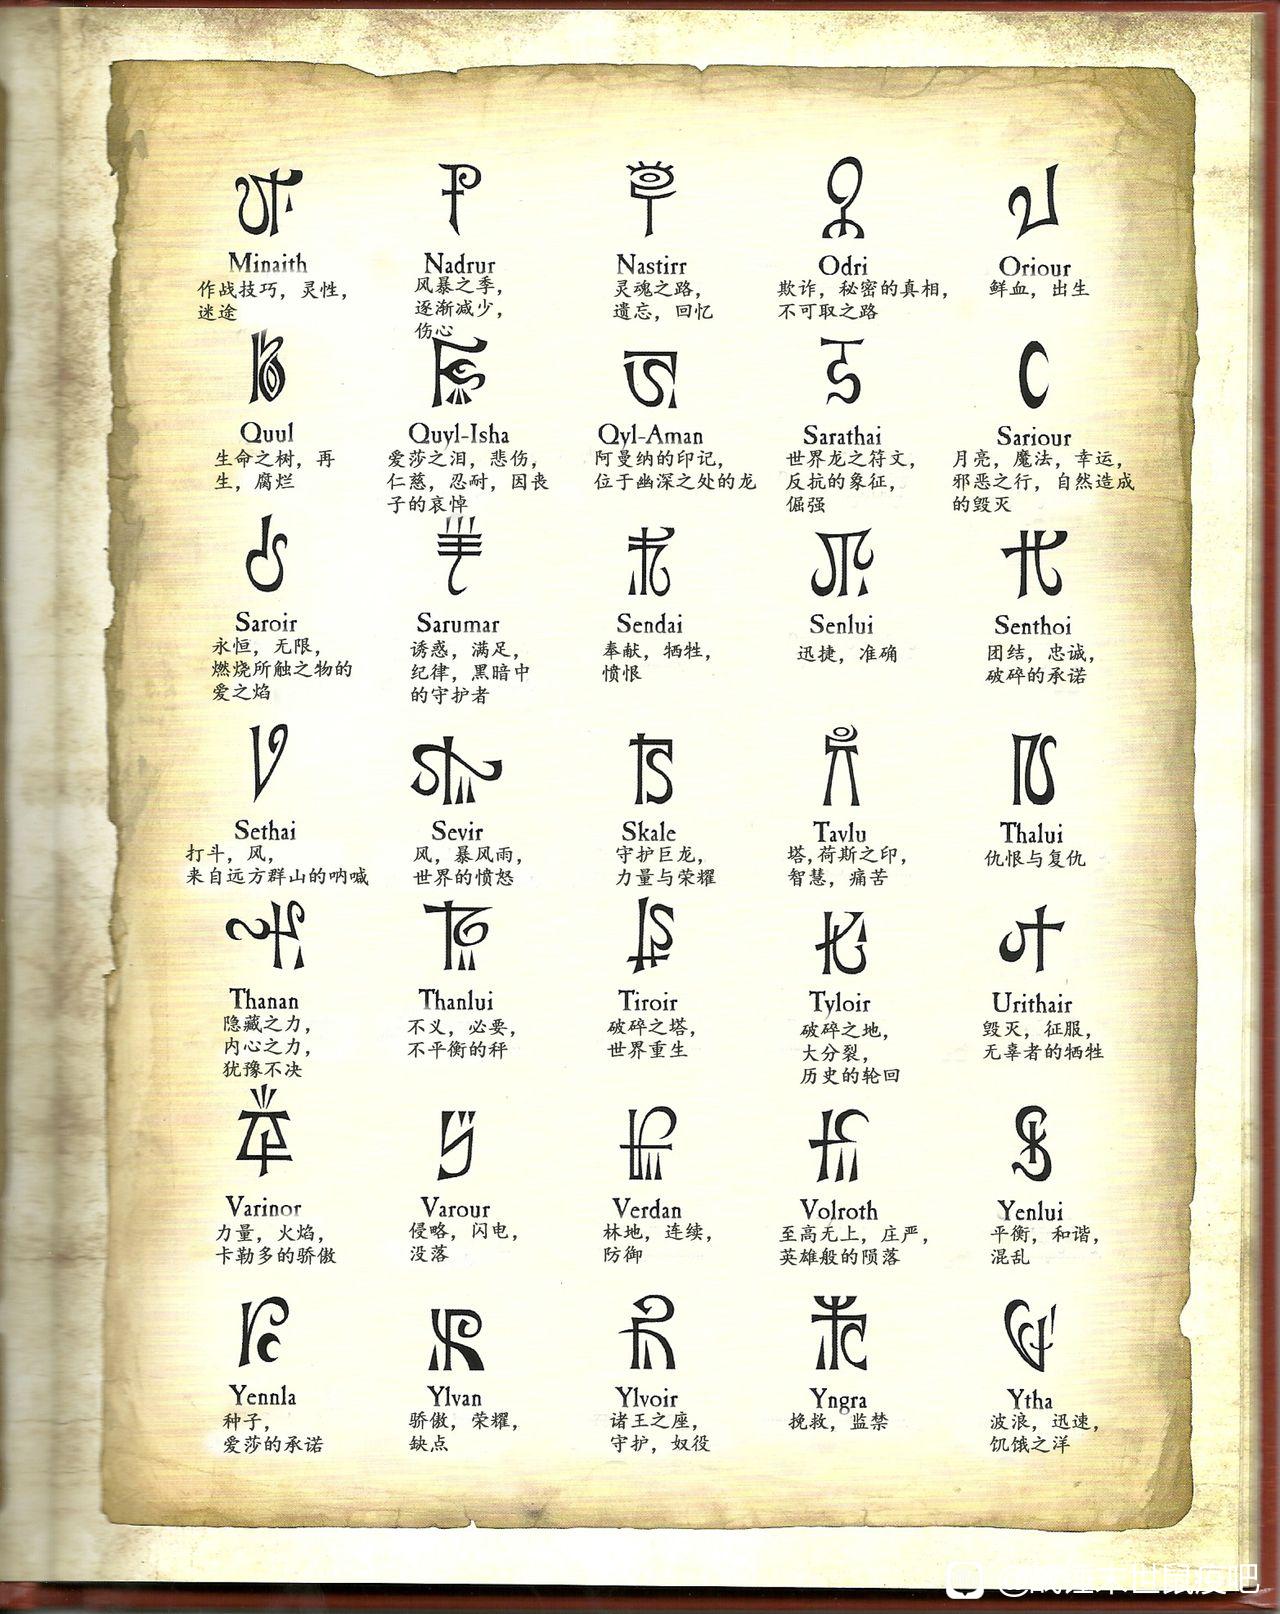 Minaith
作战技巧，灵性，
迷途
Nadrur
风暴之季，
逐渐减少，
伤心
Nastirr
灵魂之路，
遗忘，回忆
Odri
欺诈，秘密的真相，
不可取之路
Oriour
鲜血，出生
Quul
生命之树，再
生，腐烂
Quyl-Isha
爱莎之泪，悲伤，
仁慈，忍耐，因丧
子的哀悼
Qyl-Aman
阿曼纳的印记，
位于幽深之处的龙
Sarathai
世界龙之符文，
反抗的象征，
倔强
Sariour
月亮，魔法，幸运，
邪恶之行，自然造成
的毁灭
Saroir
永恒，无限，
燃烧所触之物的
爱之焰
Sarumar
诱惑，满足，
纪律，黑暗中
的守护者
Sendai
奉献，牺牲，
愤恨
Senlui
迅捷，准确
Senthoi
团结，忠诚，
破碎的承诺
Sethai
打斗，风，
来自远方群山的呐喊
Sevir
风，暴风雨，
世界的愤怒
Skale
守护巨龙，
力量与荣耀
Tavlu
塔，荷斯之印，
智慧，痛苦
Thalui
仇恨与复仇
Thanan
隐藏之力，
内心之力，
犹豫不决
Thanlui
不义，必要，
不平衡的秤
Tiroir
破碎之塔，
世界重生
Tyloir
破碎之地，
大分裂，
历史的轮回
Urithair
毁灭，征服，
无辜者的牺牲
Varinor
力量，火焰，
卡勒多的骄傲
Varour
侵略，闪电，
没落
Verdan
林地，连续，
防御
Volroth
至高无上，庄严，
英雄般的陨落
Yenlui
平衡，和谐，
混乱
Yennla
种子，
爱莎的承诺
Ylvan
骄傲，荣耀，
缺点
Ylvoir
诸王之座，
守护，奴役
Yngra
挽救，监禁
Ytha
波浪，迅速，
饥饿之洋
@战锤末世鼠疫吧